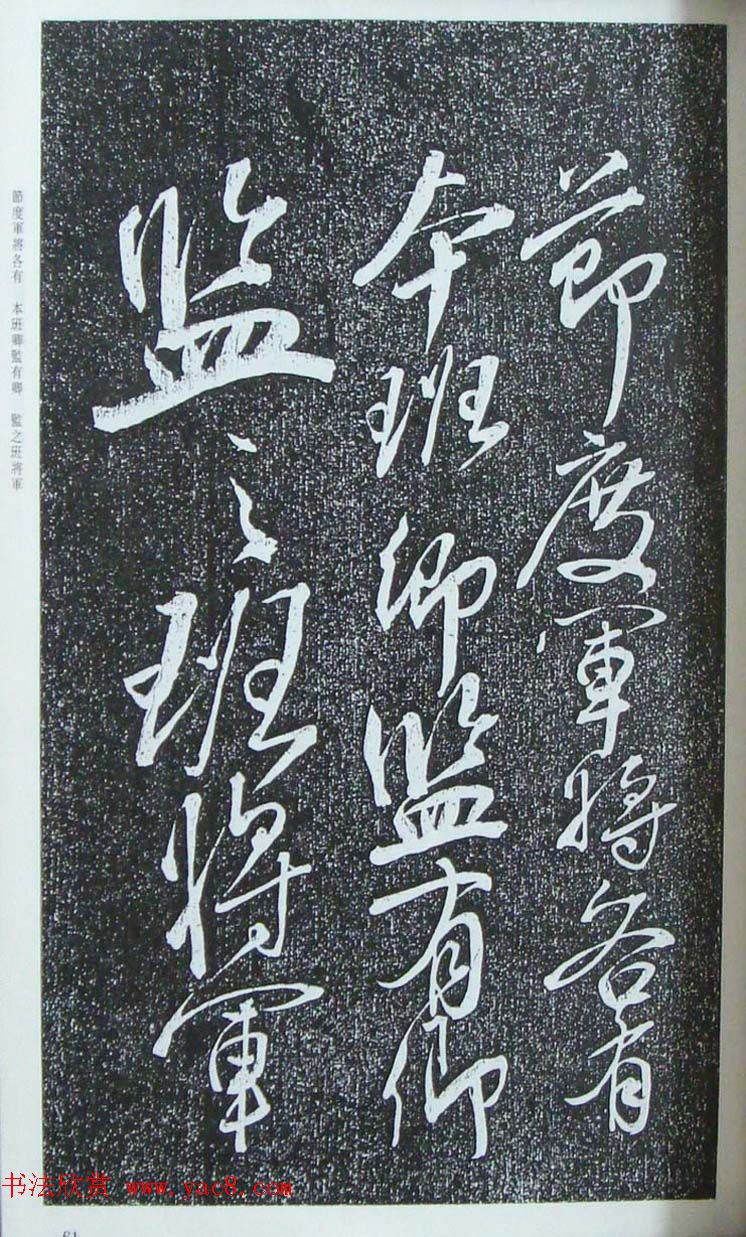 節度軍將各有
本班卿監有卿
監之班將軍
節度軍將各有 本班卿監有卿 監之班將軍
书法欣赏 www.yac8.com
61